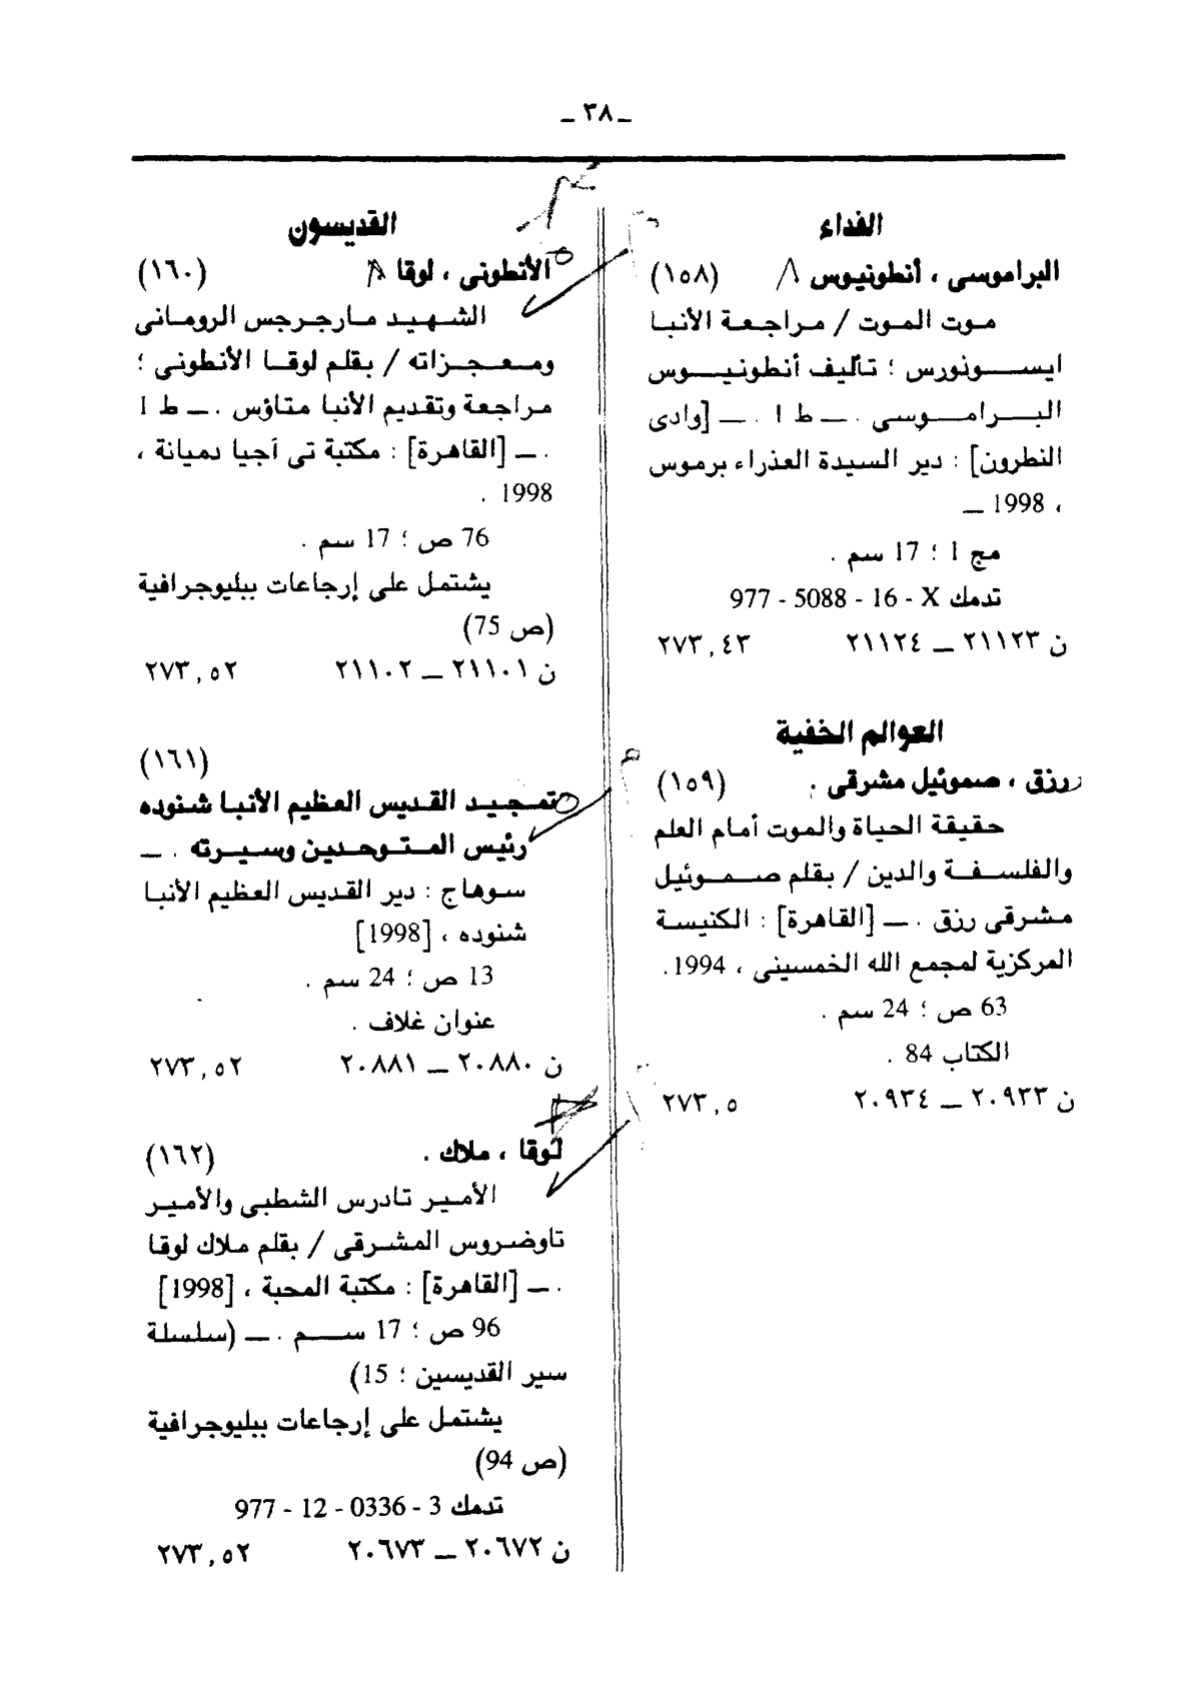 ـ ٣٨ ـ
الفداء
البراموسى ، أنطونيوس (١٥٨)
موت الموت / مراجعة الأنبا
ايسونورس ؛ تأليف أنطونيوس
البراموسى . ــ ط ١ . ــ [وادى
النطرون] : دير السيدة العذراء برموس
، 1998 ــ
مج 1 ؛ 17 سم .
تدمك 977 - 5088 - 16 - X
ن ٢١١٢٣ ــ ٢١١٢٤ ٢٧٣,٤٣
العوالم الخفية
رزق ، صموئيل مشرقى . (١٥٩)
حقيقة الحياة والموت أمام العلم
والفلسفة والدين / بقلم صموئيل
مشرقى رزق . ــ [القاهرة] : الكنيسة
المركزية لمجمع الله الخمسينى ، 1994.
63 ص ؛ 24 سم .
الكتاب 84 .
ن ٢٠٩٣٣ ــ ٢٠٩٣٤ ٢٧٣,٥
القديسون
الأنطونى ، لوقا (١٦٠)
الشهيد مارجرجس الرومانى
ومعجزاته / بقلم لوقا الأنطونى ؛
مراجعة وتقديم الأنبا متاؤس . ــ ط ١
. ــ [القاهرة] : مكتبة تى أجيا دميانة ،
1998 .
76 ص ؛ 17 سم .
يشتمل على إرجاعات ببليوجرافية
(ص 75)
ن ٢١١٠١ ــ ٢١١٠٢ ٢٧٣,٥٢
(١٦١)
تمجيد القديس العظيم الأنبا شنوده
رئيس المتوحدين وسيرته . ــ
سوهاج : دير القديس العظيم الأنبا
شنوده ، [1998]
13 ص ؛ 24 سم .
عنوان غلاف .
ن ٢٠٨٨٠ ــ ٢٠٨٨١ ٢٧٣,٥٢
لوقا ، ملاك . (١٦٢)
الأمير تادرس الشطبى والأمير
تاوضروس المشرقى / بقلم ملاك لوقا
. ــ [القاهرة] : مكتبة المحبة ، [1998]
96 ص ؛ 17 سم . ــ (سلسلة
سير القديسين ؛ 15)
يشتمل على إرجاعات ببليوجرافية
(ص 94)
تدمك 977 - 12 - 0336 - 3
ن ٢٠٦٧٢ ــ ٢٠٦٧٣ ٢٧٣,٥٢